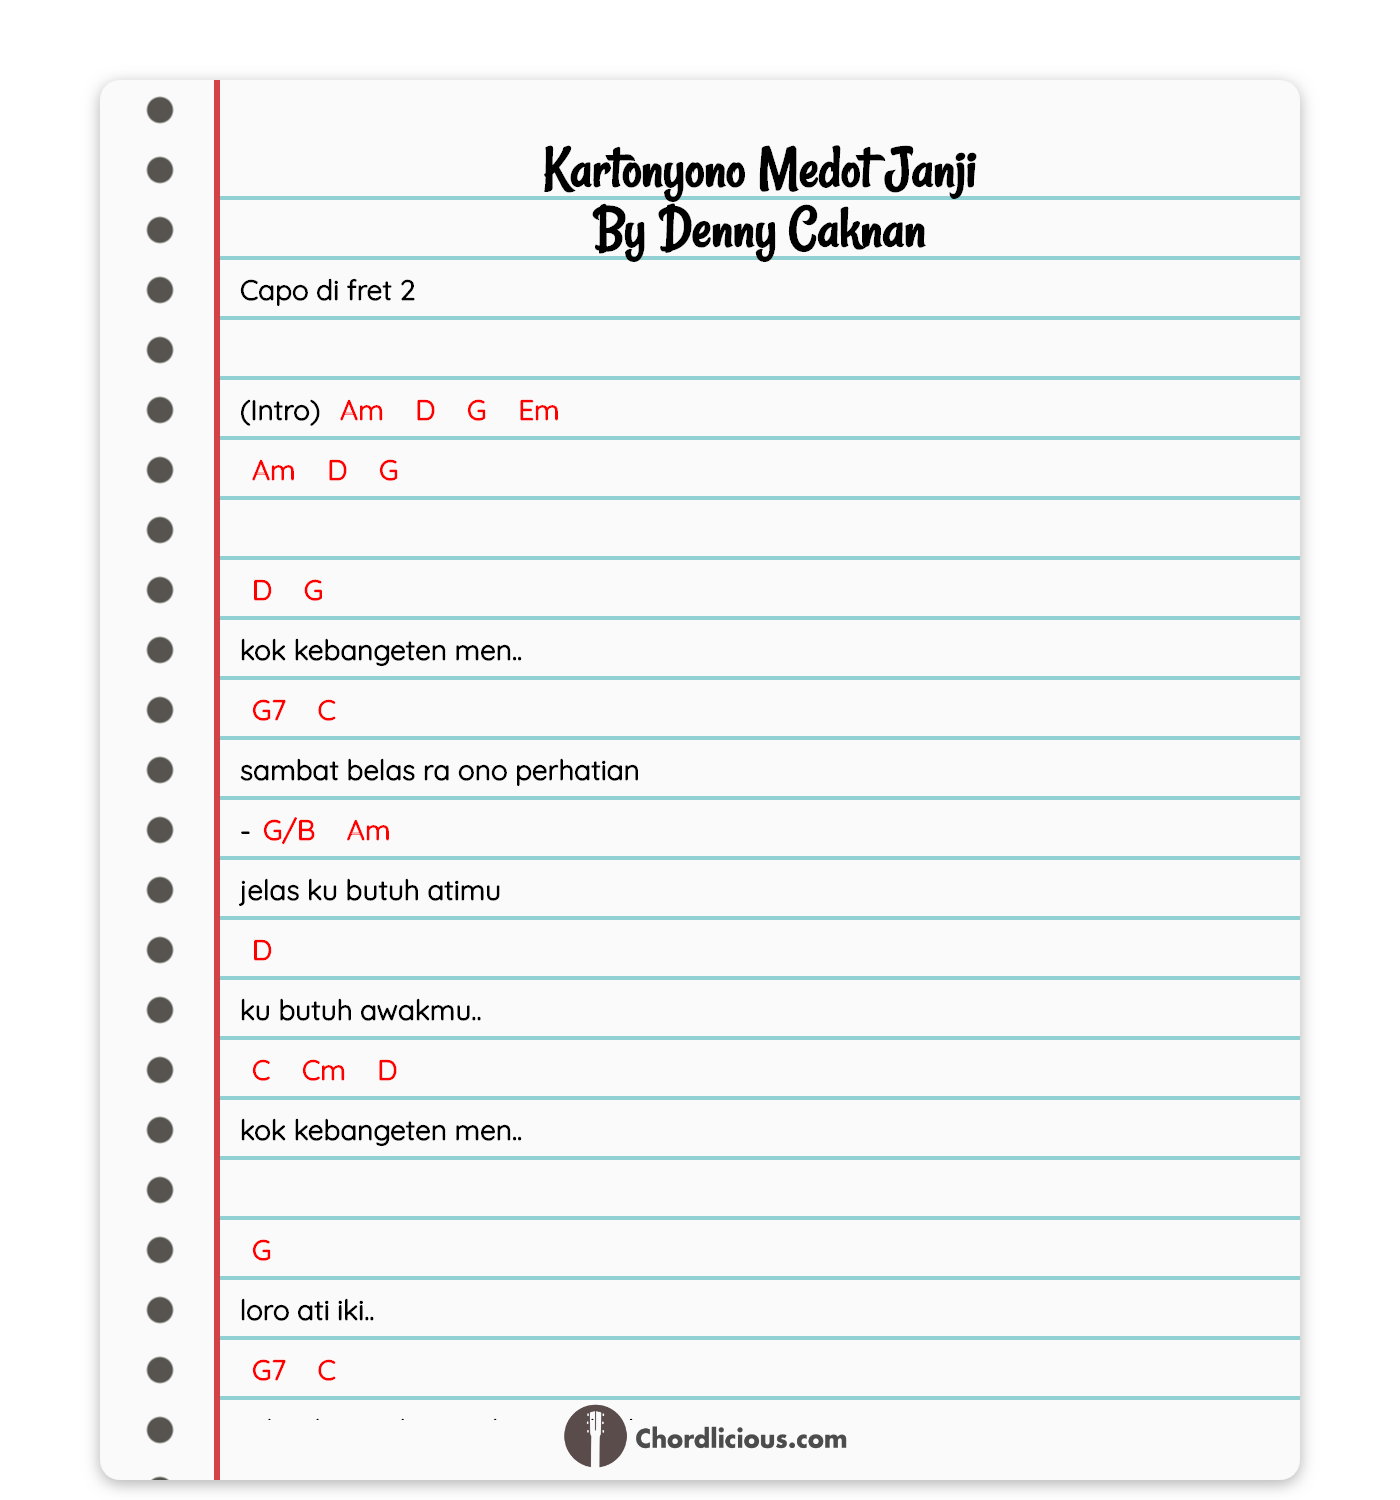 Kartonyono Medot Janji
By Denny Caknan
Capo di fret 2
(Intro) Am D G Em
Am D G
D G
kok kebangeten men..
G7 C
sambat belas ra ono perhatian
- G/B Am
jelas ku butuh atimu
D
ku butuh awakmu..
C Cm D
kok kebangeten men..
G
loro ati iki..
G7 C
Chordlicious.com